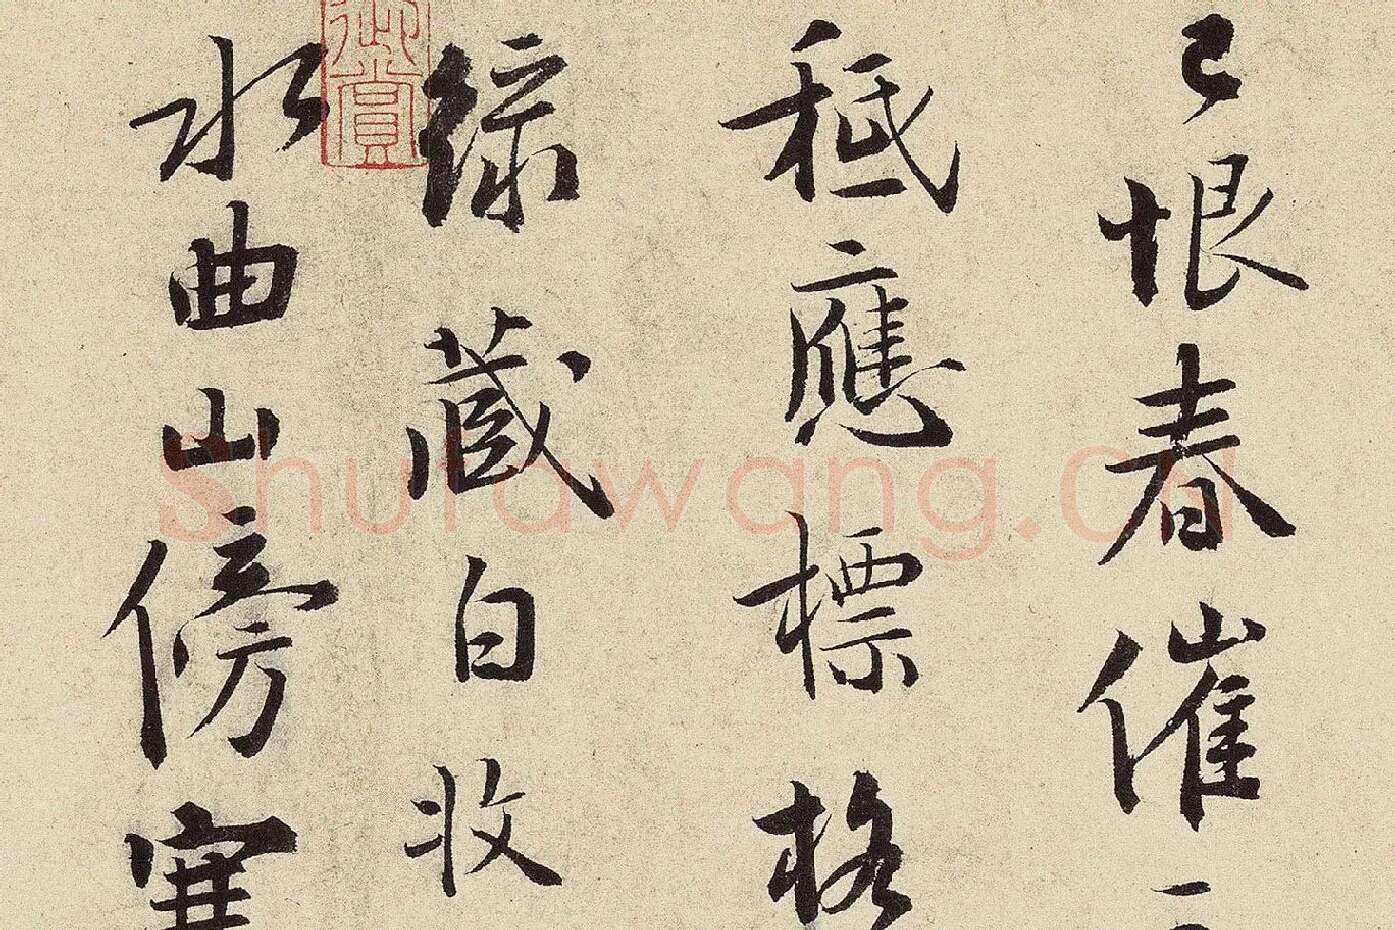 已恨春催
秪應標格
綠藏白收
水曲山傍寒
御賞
shufawang.cn